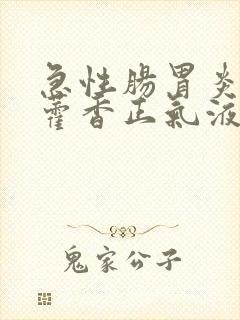 急性腸胃炎
霍香正氣液
鬼家公子